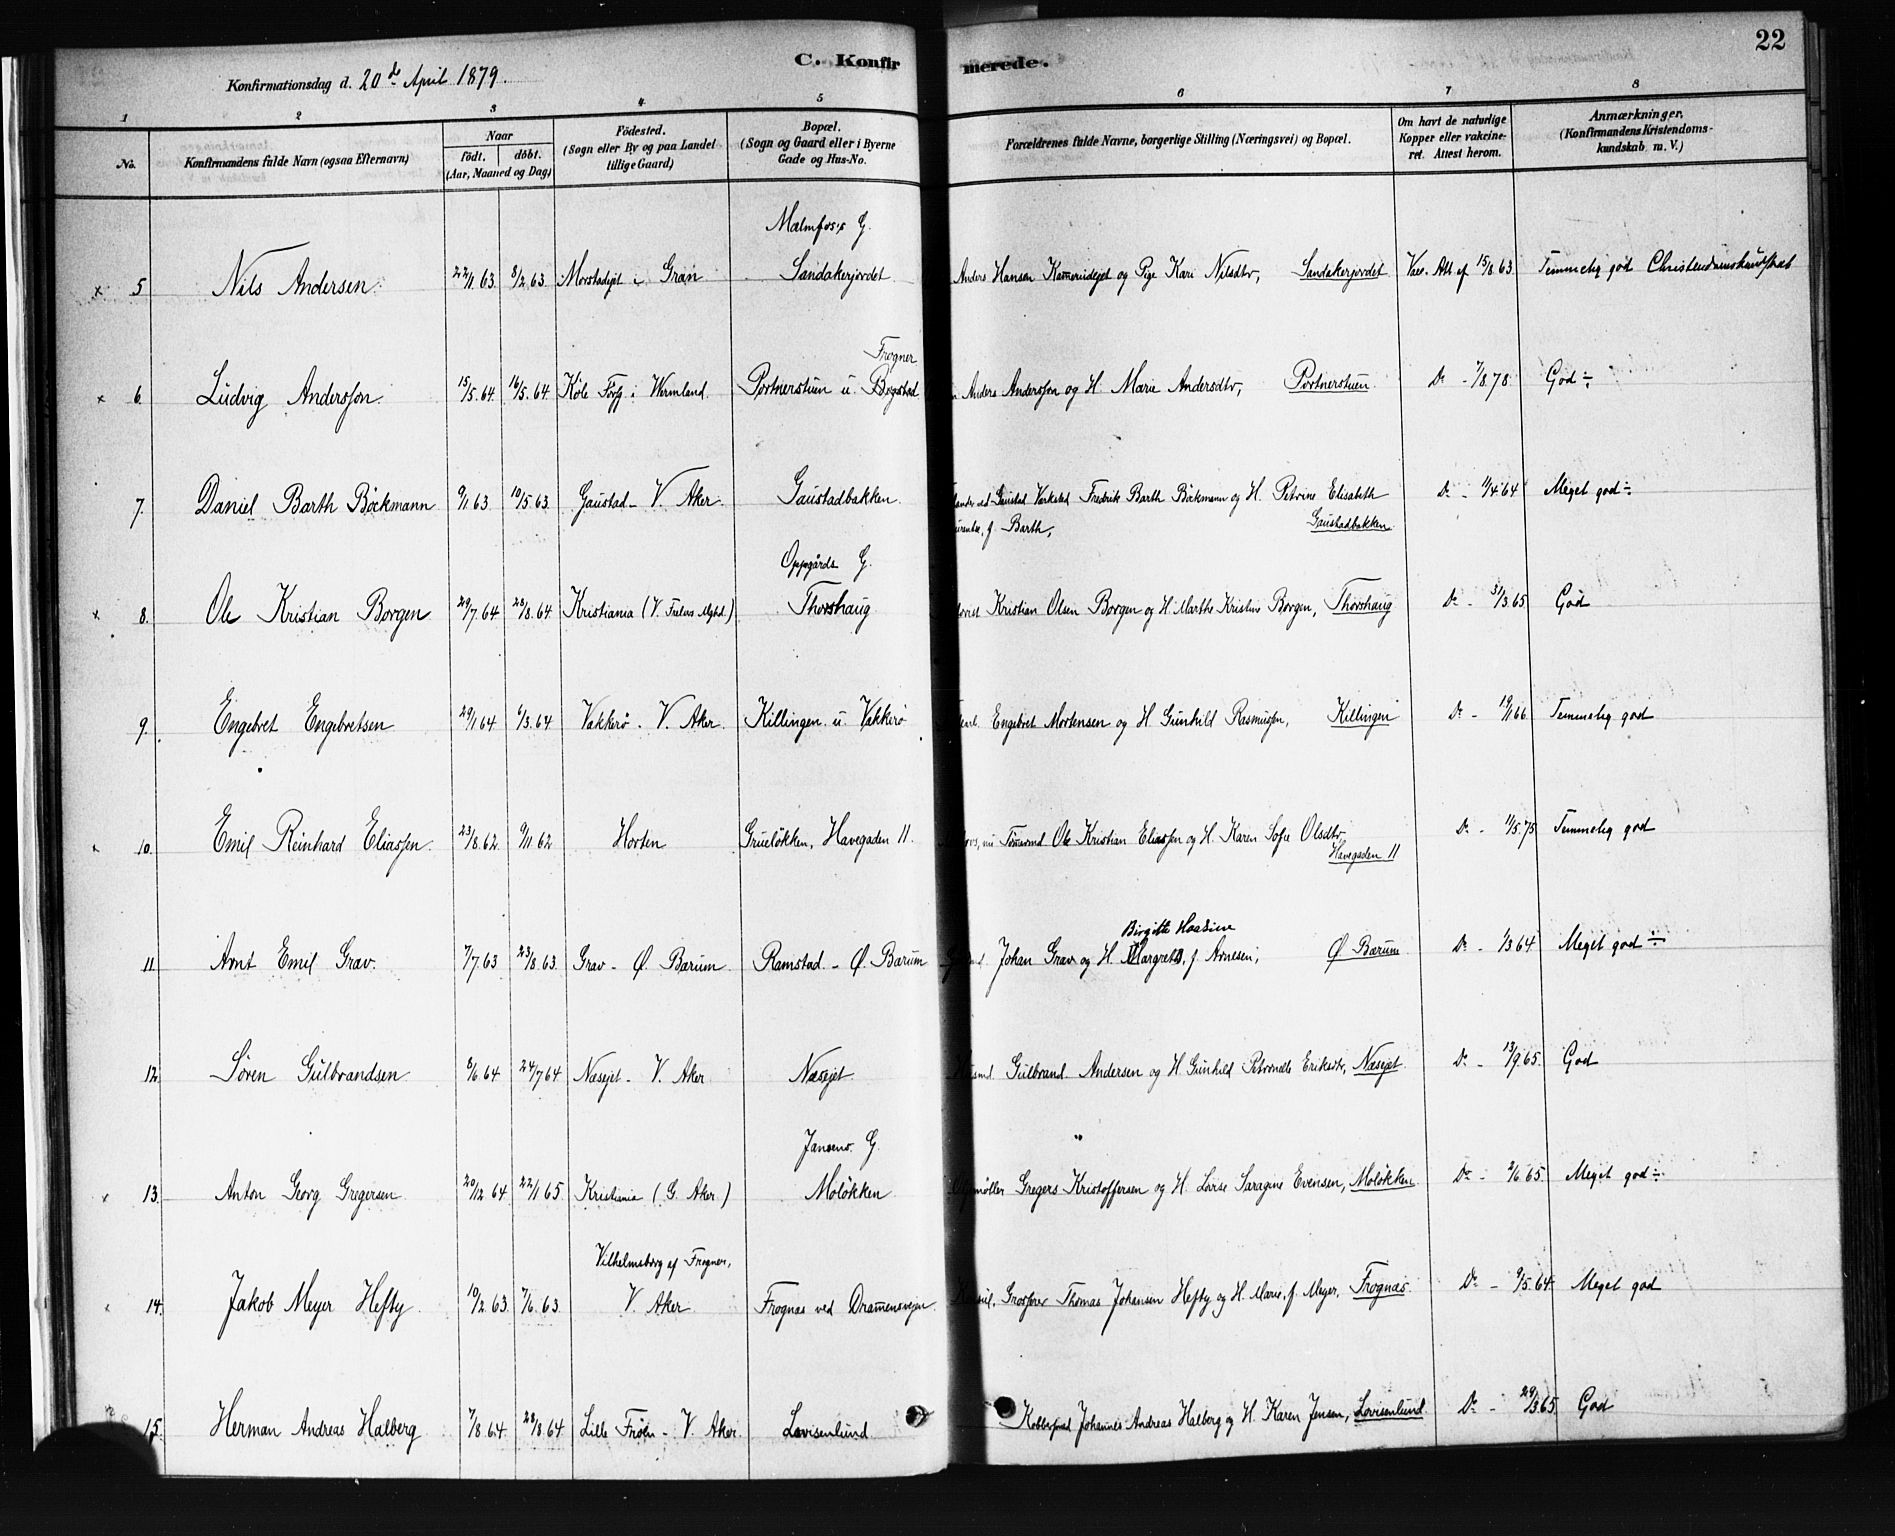 22
C. Konfirmerede.
Konfirmationsdag d. 20de April 1879.
1 2 3 4 5 6 7 8
No.
Konfirmandens fulde Navn (ogsaa Efternavn)
Naar
født. døbt.
(Aar, Maaned og Dag)
Fødested.
(Sogn eller By og paa Landet
tillige Gaard)
Bopæl.
(Sogn og Gaard eller i Byerne
Gade og Hus-No.
Forældrenes fulde Navne, borgerlige Stilling (Næringsvei) og Bopæl.
Om havt de naturlige
Kopper eller vakcine-
ret. Attest herom.
Anmærkninger.
(Konfirmandens Kristendoms-
kundskab m. V.)
Malmfos's G.
× 5 Nils Andersen 22/1 63 8/2 63. Morstadejet i Gran Sandakerjordet Anders Hansen og Pige Kari Nilsdtr, Sandakerjordet Vac. Att. af 15/8 63. Temmelig god Christendomskundskab
Frogner
× 6. Ludvig Andersson. 15/5 64. 16/5 64 Köle Fors. i Wermland. Portnerstuen u. Bogstad Anders Andersson og H. Marie Andersdtr, Portnerstuen. Do - 7/8 78 God ÷
7. Daniel Barth Böckmann 9/1 63 10/5 63 Gaustad - V. Aker. Gaustadbakken. ved Gaustad Værksted Fredrik Barth Böckmann og H. Petrine Elisabeth Do - 11/4 64 Meget god ÷
f. Barth, Gaustadbakken
Oppgårds G.
× 8. Ole Kristian Borgen 29/7 64 28/8 64 Kristiania (V. Frelsers Mghd.) Thorshaug Kristian Olsen Borgen og H. Marthe Kristine Borgen, Thorshaug Do - 31/3 65 God
9. Engebret Engebretsen 29/1 64 6/3 64 Vækkerö - V. Aker. Killingen u. Vækkerö Engebret Mortensen og H. Gunhild Rasmussen, Killingen Do - 19/1 66. Temmelig god
10. Emil Reinhard Eliassen. 23/8 62. 9/11 62 Horten Grueløkken, Havegaden 11. nu Tömmermd Ole Kristian Eliassen og H. Karen Sofie Olsdtr, Do - 11/5 75 Temmelig god
Havegaden 11
Birgitte Haasine
11. Arnt Emil Grav. 7/7 63 23/8 63. Grav - Ø. Bærum. Ramstad - Ø. Bærum Johan Grav og H. Margrethe, f. Arnesen; Ø Bærum Do - 1/3 64 Meget god ÷
12. Søren Gulbrandsen 8/6 64 24/7 64 Næsejet - V. Aker Næsejet Husmd. Gulbrand Andersen og H. Gunhild Petronelle Eriksdtr, Næsejet. Do - 13/9 65. God
Jansens G.
× 13. Anton Georg Gregersen 20/12 64 22/1 65 Kristiania (G. Aker.) Moløkken Gregers Kristoffersen og H. Lovise Saragine Evensen, Moløkken. Do - 2/6 65. Meget god ÷
Vilhelmsborg af Frogner,
14. Jakob Meyer Hefty. 10/2 63. 7/6 63. V. Aker Frognæs ved Dramensvejen Konsul, Grosserer Thomas Johansen Hefty og H. Marie, f. Meyer, Frognæs. Do - 9/5 64. Meget god
15. Herman Andreas Halberg 7/8 64. 28/8 64 Lille Frøen - V. Aker. Lovisenlund Johannes Andreas Halberg og H. Karen Jensen, Lovisenlund Do - 29/3 65 God